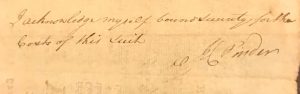 I acknowledge myself bound Security for the
Costs of this Suit
Pinder